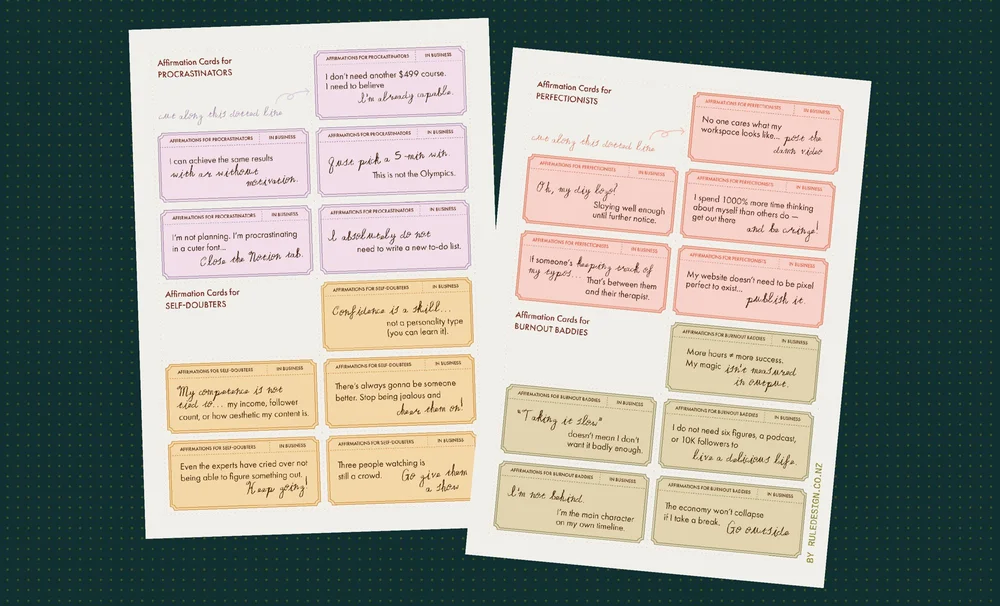 Affirmation Cards for
PROCRASTINATORS
cut along this dotted line
AFFIRMATIONS FOR PROCRASTINATORS IN BUSINESS
I don't need another $499 course.
I need to believe
I'm already capable.
AFFIRMATIONS FOR PROCRASTINATORS IN BUSINESS
I can achieve the same results
with or without
motivation.
AFFIRMATIONS FOR PROCRASTINATORS IN BUSINESS
Just pick a 5-min win.
This is not the Olympics.
AFFIRMATIONS FOR PROCRASTINATORS IN BUSINESS
I'm not planning. I'm procrastinating
in a cuter font...
Close the Notion tab.
AFFIRMATIONS FOR PROCRASTINATORS IN BUSINESS
I absolutely do not
need to write a new to-do list.
Affirmation Cards for
SELF-DOUBTERS
AFFIRMATIONS FOR SELF-DOUBTERS IN BUSINESS
Confidence is a skill...
not a personality type
(you can learn it).
AFFIRMATIONS FOR SELF-DOUBTERS IN BUSINESS
My competence is not
tied to... my income, follower
count, or how aesthetic my content is.
AFFIRMATIONS FOR SELF-DOUBTERS IN BUSINESS
There's always gonna be someone
better. Stop being jealous and
cheer them on!
AFFIRMATIONS FOR SELF-DOUBTERS IN BUSINESS
Even the experts have cried over not
being able to figure something out.
Keep going!
AFFIRMATIONS FOR SELF-DOUBTERS IN BUSINESS
Three people watching is
still a crowd. Go give them
a show
Affirmation Cards for
PERFECTIONISTS
cut along this dotted line
AFFIRMATIONS FOR PERFECTIONISTS IN BUSINESS
No one cares what my
workspace looks like... post the
damn video
AFFIRMATIONS FOR PERFECTIONISTS IN BUSINESS
Oh, my diy logo?
Slaying well enough
until further notice.
AFFIRMATIONS FOR PERFECTIONISTS IN BUSINESS
I spend 1000% more time thinking
about myself than others do –
get out there
and be cringe!
AFFIRMATIONS FOR PERFECTIONISTS IN BUSINESS
If someone's keeping track of
my typos... That's between them
and their therapist.
AFFIRMATIONS FOR PERFECTIONISTS IN BUSINESS
My website doesn't need to be pixel
perfect to exist...
publish it.
Affirmation Cards for
BURNOUT BADDIES
AFFIRMATIONS FOR BURNOUT BADDIES IN BUSINESS
More hours ≠ more success.
My magic isn't measured
in output.
AFFIRMATIONS FOR BURNOUT BADDIES IN BUSINESS
"Taking it slow"
doesn't mean I don't
want it badly enough.
AFFIRMATIONS FOR BURNOUT BADDIES IN BUSINESS
I do not need six figures, a podcast,
or 10K followers to
live a delicious life.
AFFIRMATIONS FOR BURNOUT BADDIES IN BUSINESS
I'm not behind.
I'm the main character
on my own timeline.
AFFIRMATIONS FOR BURNOUT BADDIES IN BUSINESS
The economy won't collapse
if I take a break. Go outside
BY RULEDESIGN.CO.NZ